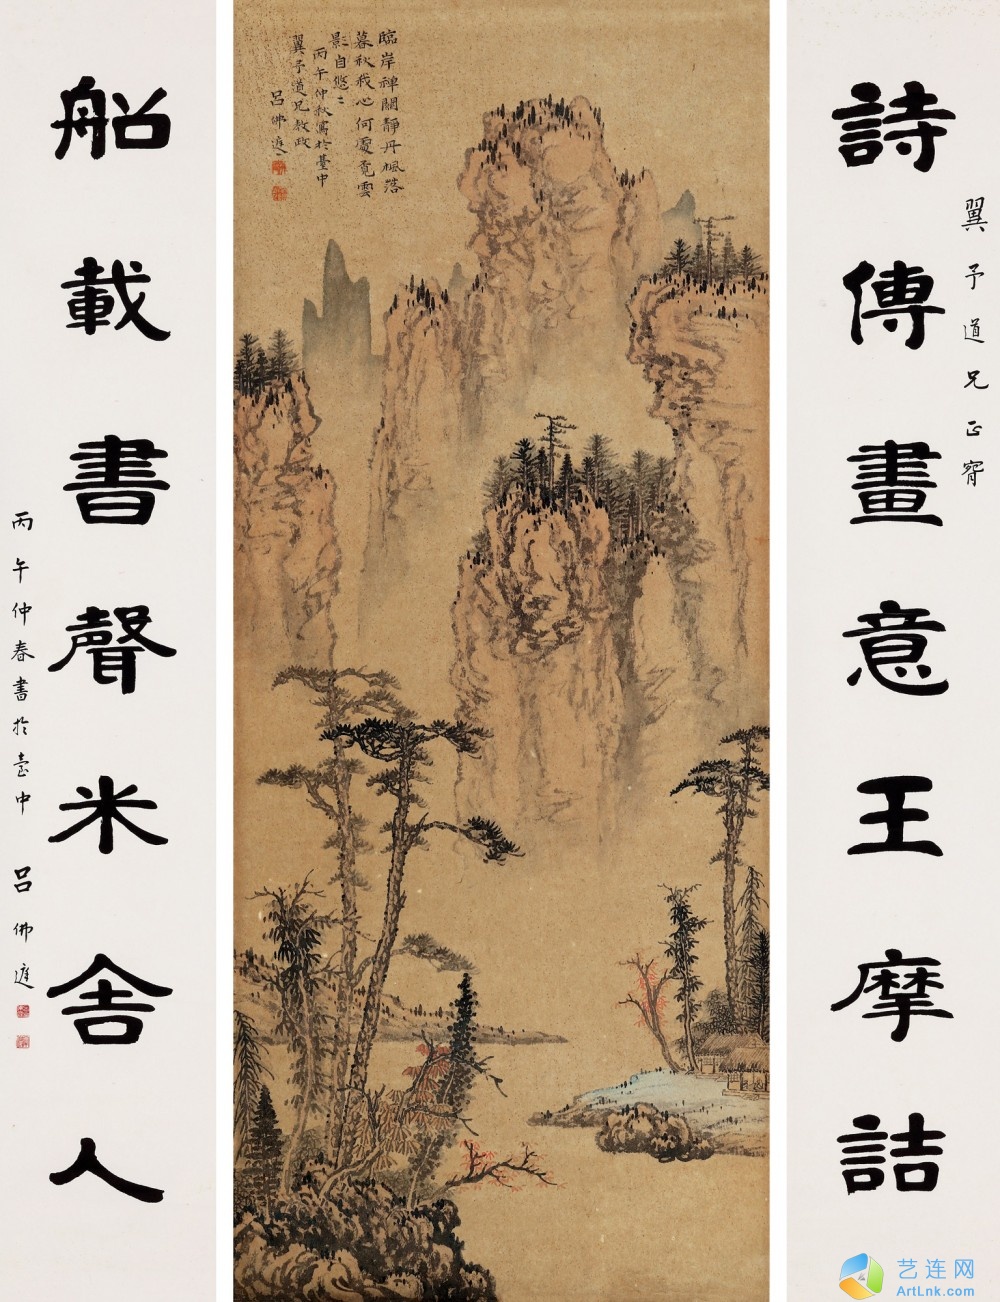 詩傳畫意王摩詰
翼予道兄正腕
臨岸禅關靜丹楓落
暮秋我心何處覓雲
影自悠〻
丙午仲秋寫於臺中
翼予道兄教政
呂佛庭
船載書聲米舍人
丙午仲春書於臺中 呂佛庭
艺连网
ArtLnk.com